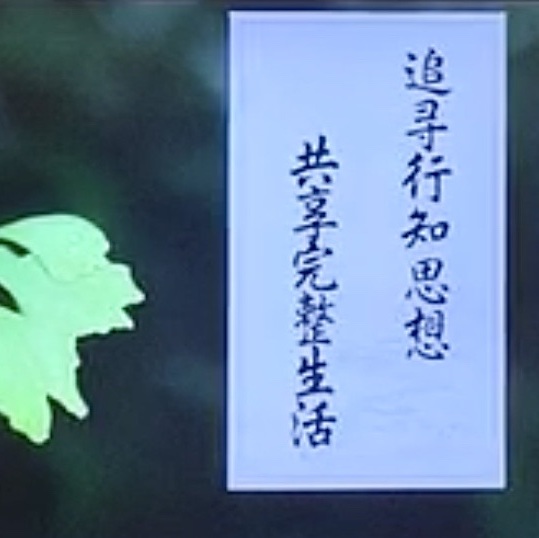 追寻行知思想
共享完整生活